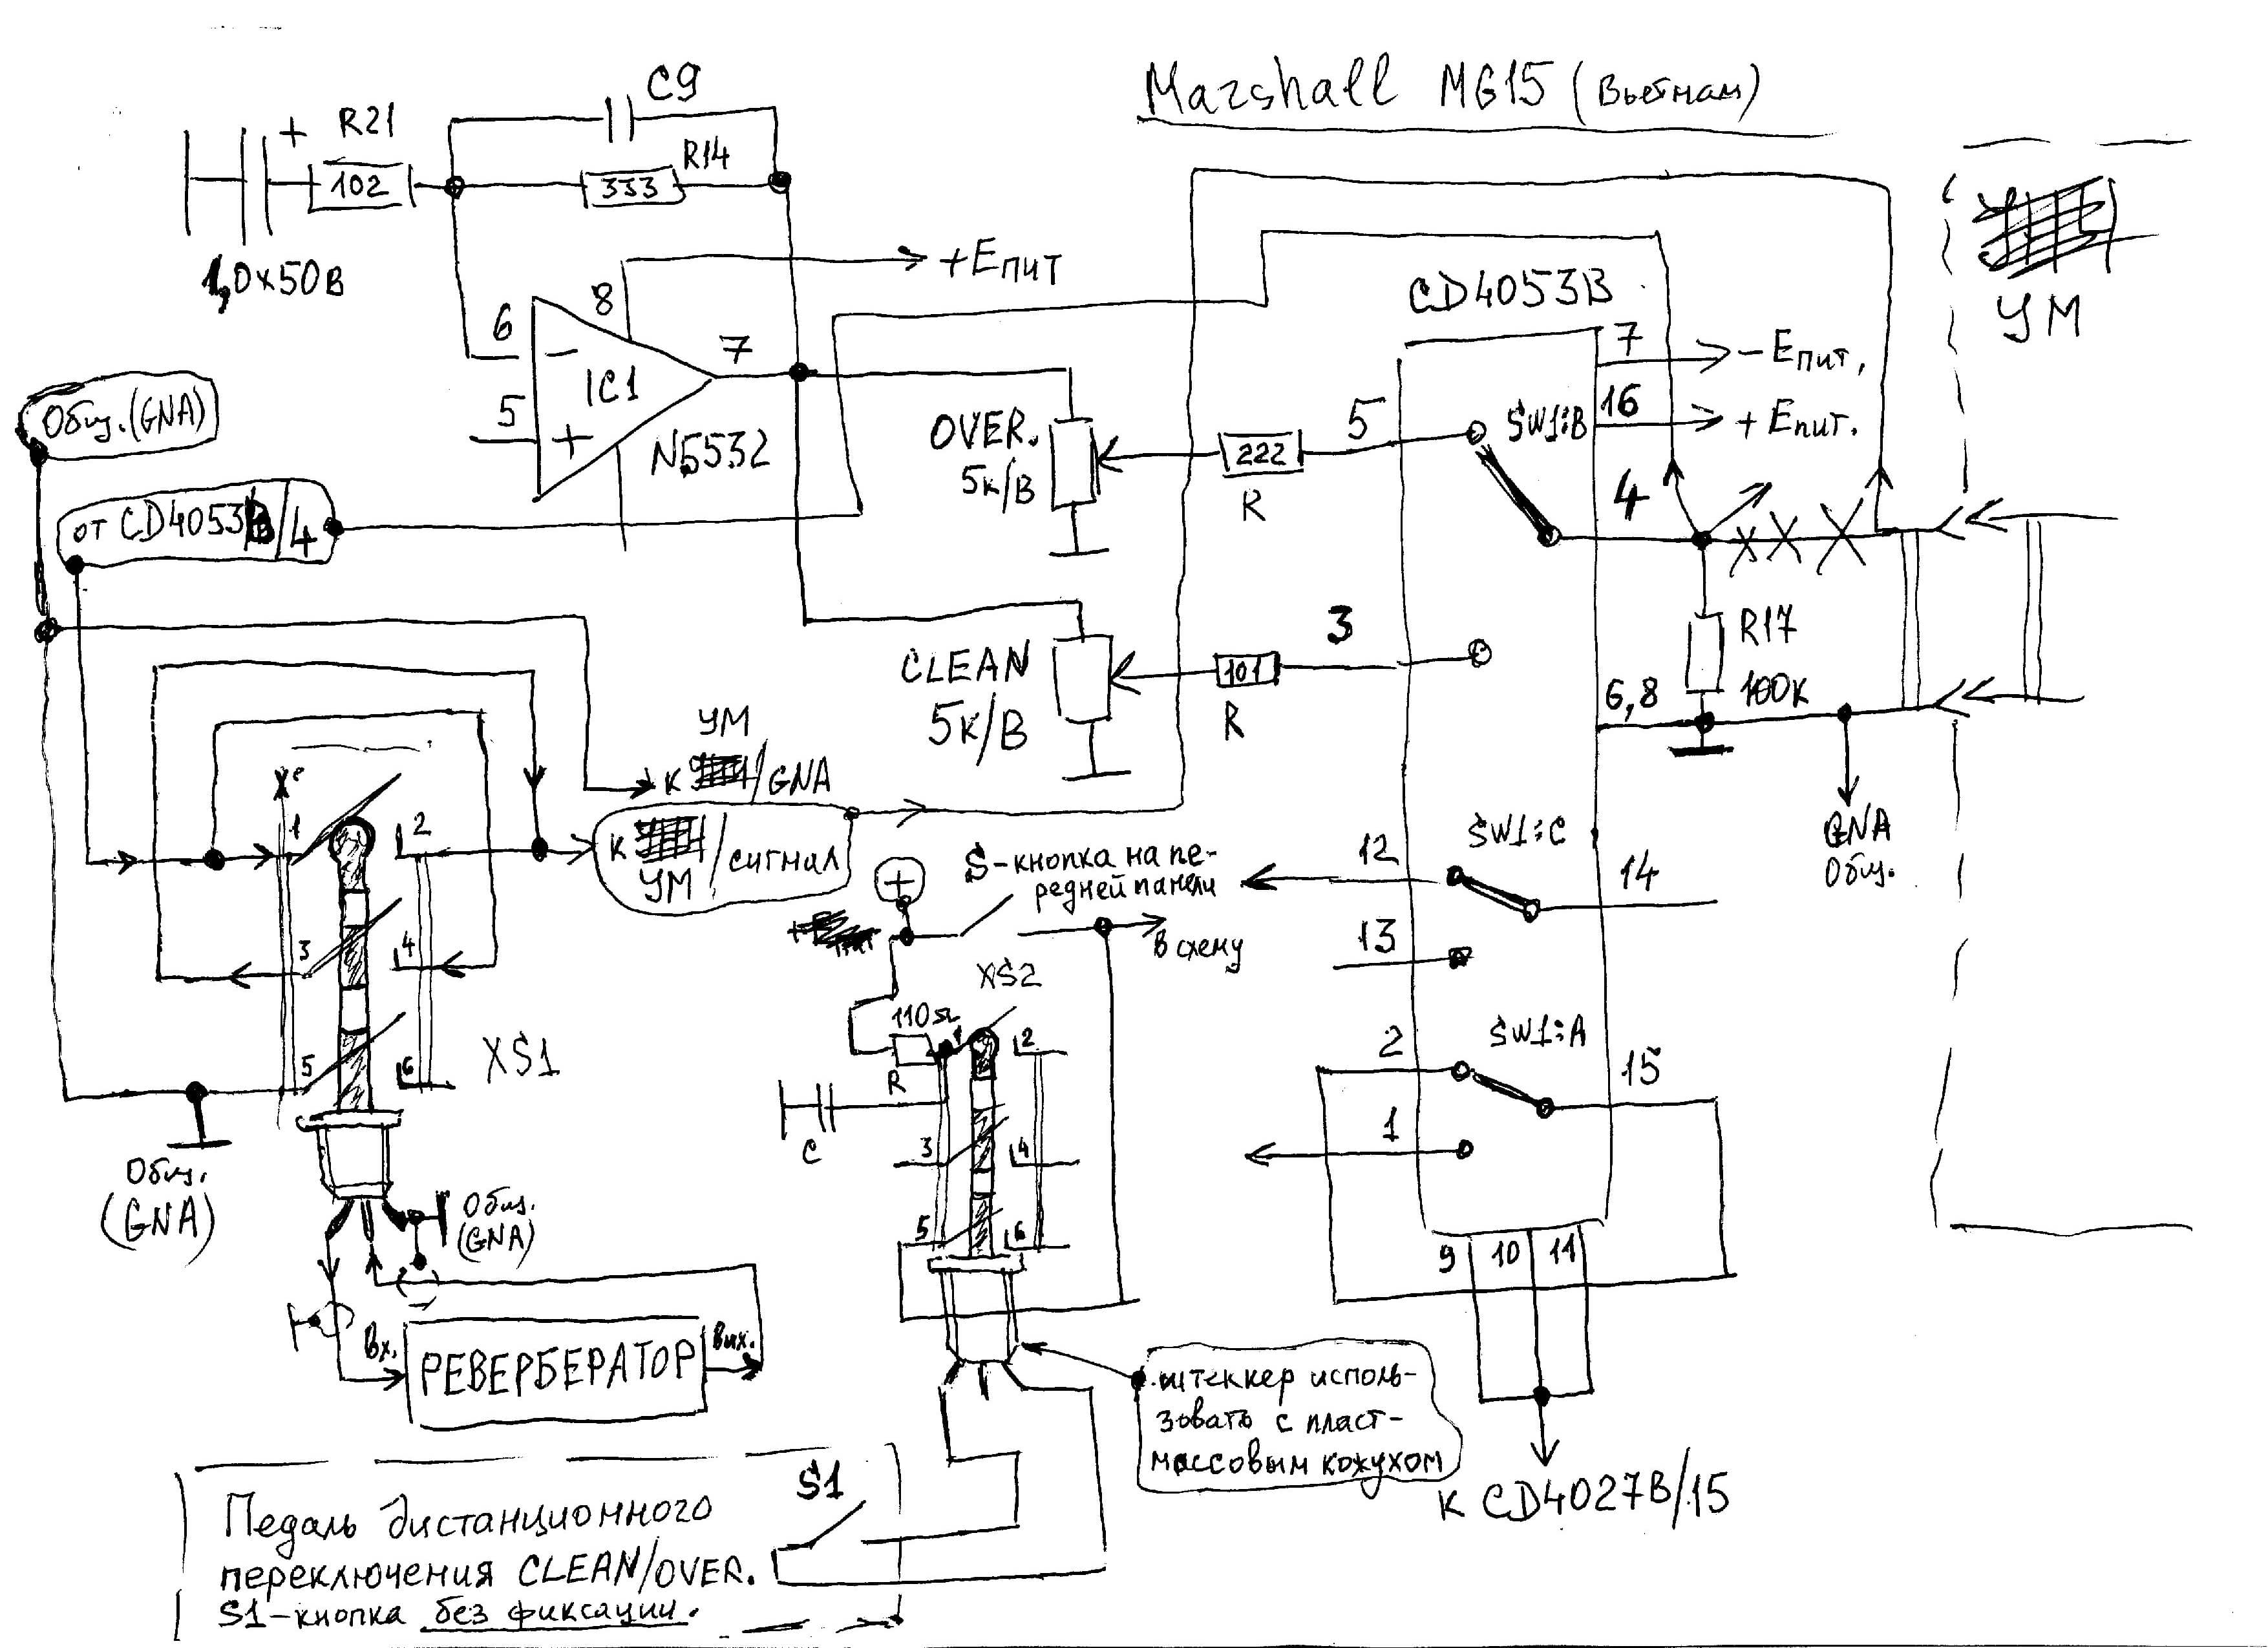 Marshall MG15 (Вьетнам)
C9
+ R21
102
R14
333
1,0x50В
+Eпит
8
6
7
5
IC1
N5532
CD4053B
УМ
7
-Eпит.
16
+Eпит.
SW1:B
Общ.(GNA)
OVER.
5к/В
222
R
5
4
от CD4053B/4
3
R17
100к
CLEAN
5к/В
101
R
6,8
УМ
к /GNA
GNA
Общ.
1
2
к /сигнал
УМ
S-кнопка на пе-
редней панели
+
в схему
12
SW1:C
14
13
3
4
XS2
110Ω
R
C
1
2
XS1
5
6
2
SW1:A
15
1
3
4
5
6
Общ.
(GNA)
Общ.
(GNA)
9 10 11
Вх.
РЕВЕРБЕРАТОР
Вых.
штеккер исполь-
зовать с пласт-
массовым кожухом
к CD4027B/15
S1
Педаль дистанционного
переключения CLEAN/OVER.
S1-кнопка без фиксации.